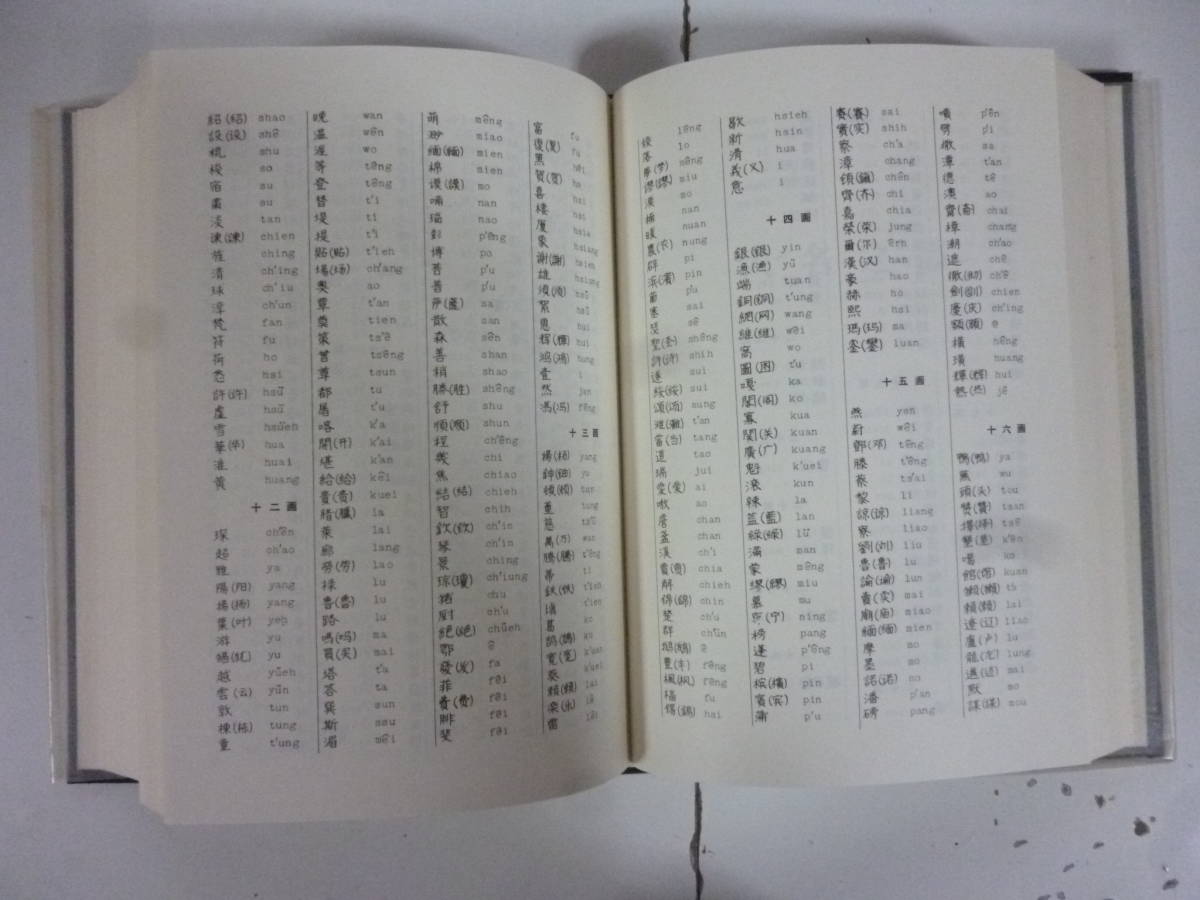 紹(紹) shao
設(设) shê
梳 shu
梭 so
宿 su
肅 su
淡 tan
諫(諫) chien
旌 ching
清 ch'ing
球 ch'iu
淳 ch'un
梵 fan
符 fu
荷 ho
悉 hsi
許(许) hsü
虛 hsü
雪 hsüeh
華(华) hua
淮 huai
黄 huang
十二画
琛 chên
超 ch'ao
雅 ya
陽(阳) yang
揚(扬) yang
葉(叶) yeh
游 yu
越 yüeh
雲(云) yün
敦 tun
棟(栋) tung
童 t'ung
晚 wan
温 wên
渥 wo
等 têng
登 têng
替 t'i
堤 ti
提 t'i
貼(贴) t'ieh
場(场) ch'ang
奥 ao
覃 t'an
奠 tien
策 ts'ê
曾 tsêng
尊 tsun
都 tu
屠 t'u
喀 k'a
開(开) k'ai
堪 k'an
給(给) kêi
貴(贵) kuei
腊(臘) la
萊 lai
廊 lang
勞(劳) lao
禄 lu
魯(鲁) lu
路 lu
嗎(吗) ma
買(买) mai
塔 t'a
答 ta
巽 sun
斯 ssu
湄 mêi
萌 mêng
渺 miao
緬(缅) mien
棉 mien
謨(谟) mo
喃 nan
瑙 nao
彭 p'êng
博 po
菩 p'u
普 p'u
萨(薩) sa
散 san
森 sên
善 shan
稍 shao
勝(胜) shêng
舒 shu
順(顺) shun
程 ch'êng
幾 chi
焦 chiao
結(结) chieh
智 chih
欽(钦) ch'in
琴 ch'in
景 ching
琼(瓊) ch'iung
猪 chu
厨 ch'u
絕(绝) chüeh
鄂 ê
發(发) fa
菲 fêi
費(费) fêi
腓 fêi
斐 fêi
富 fu
復(复) fu
黑 hêi
賀(贺) ho
喜 hsi
厦 hsia
象 hsiang
謝(謝) hsieh
雄 hsiung
須(须) hsü
絮 hsü
惠 hui
辉(輝) hui
鸿(鴻) hung
壹 i
然 jan
馮(冯) fêng
十三画
楊(杨) yang
鈿(钿) yu
頓(顿) tun
董 tung
慈 tz'ŭ
萬(万) wan
騰(腾) t'êng
蒂 ti
鉄(铁) t'ieh
填 t'ien
葛 ko
鹄(鵠) ku
寬(宽) k'uan
葵 k'uei
賴(頼) lai
雷 lêi
棱 lêng
落 lo
夢(梦) mêng
謬(謬) miu
漠 mo
楠 nan
暖 nuan
農(农) nung
辟 pi
浜(濱) pin
蒲 p'u
塞 sai
瑟 sê
聖(圣) shêng
詩(诗) shih
遂 sui
綏(绥) sui
頌(颂) sung
滩(灘) t'an
當(当) tang
道 tao
瑞 jui
愛(爱) ai
嗷 ao
詹 chan
盏 chan
溪 ch'i
賈(贾) chia
解 chieh
锦(錦) chin
楚 ch'u
群 ch'ün
鹅(鵝) ê
豐(丰) fêng
楓(枫) fêng
福 fu
歇 hsieh
新 hsin
滑 hua
義(义) i
意 i
十四画
銀(銀) yin
漁(渔) yü
端 tuan
銅(銅) t'ung
網(网) wang
維(维) wêi
窩 wo
圖(图) t'u
嘎 ka
閣(阁) ko
寡 kua
關(关) kuan
廣(广) kuang
魁 k'uei
滚 kun
辣 la
蓝(藍) lan
緑(绿) lü
滿 man
蒙 mêng
繆(繆) miu
慕 mu
寧(宁) ning
榜 pang
蓬 p'êng
碧 pi
槟(檳) pin
賓(宾) pin
蒲 p'u
賽(赛) sai
實(实) shih
察 ch'a
漳 chang
齊(齐) chi
嘉 chia
榮(荣) jung
爾(尔) êrh
漢(汉) han
豪 hao
赫 ho
熙 hsi
瑪(玛) ma
銮(鑾) luan
十五画
燕 yen
蔚 wêi
鄧(邓) têng
滕 t'êng
蔡 ts'ai
黎 li
諒(谅) liang
寮 liao
劉(刘) liu
魯(鲁) lu
論(论) lun
賣(卖) mai
廟(庙) miao
緬(缅) mien
摩 mo
墨 mo
諾(诺) no
潘 p'an
磅 pang
噴 p'ên
劈 p'i
撒 sa
潭 t'an
德 tê
澳 ao
齋(斋) chai
樟 chang
潮 ch'ao
遮 chê
徹(彻) ch'ê
劍(劍) chien
慶(庆) ch'ing
額(额) ê
横 hêng
潢 huang
輝(辉) hui
熱(热) jê
十六画
鴨(鸭) ya
頭(头) tou
贊(赞) tsan
墾(垦) k'ên
噶 ko
館(馆) kuan
懶(懒) lan
賴(赖) lai
遼(辽) liao
盧(卢) lu
龍(龙) lung
邁(迈) mai
默 mo
謀(谋) mou